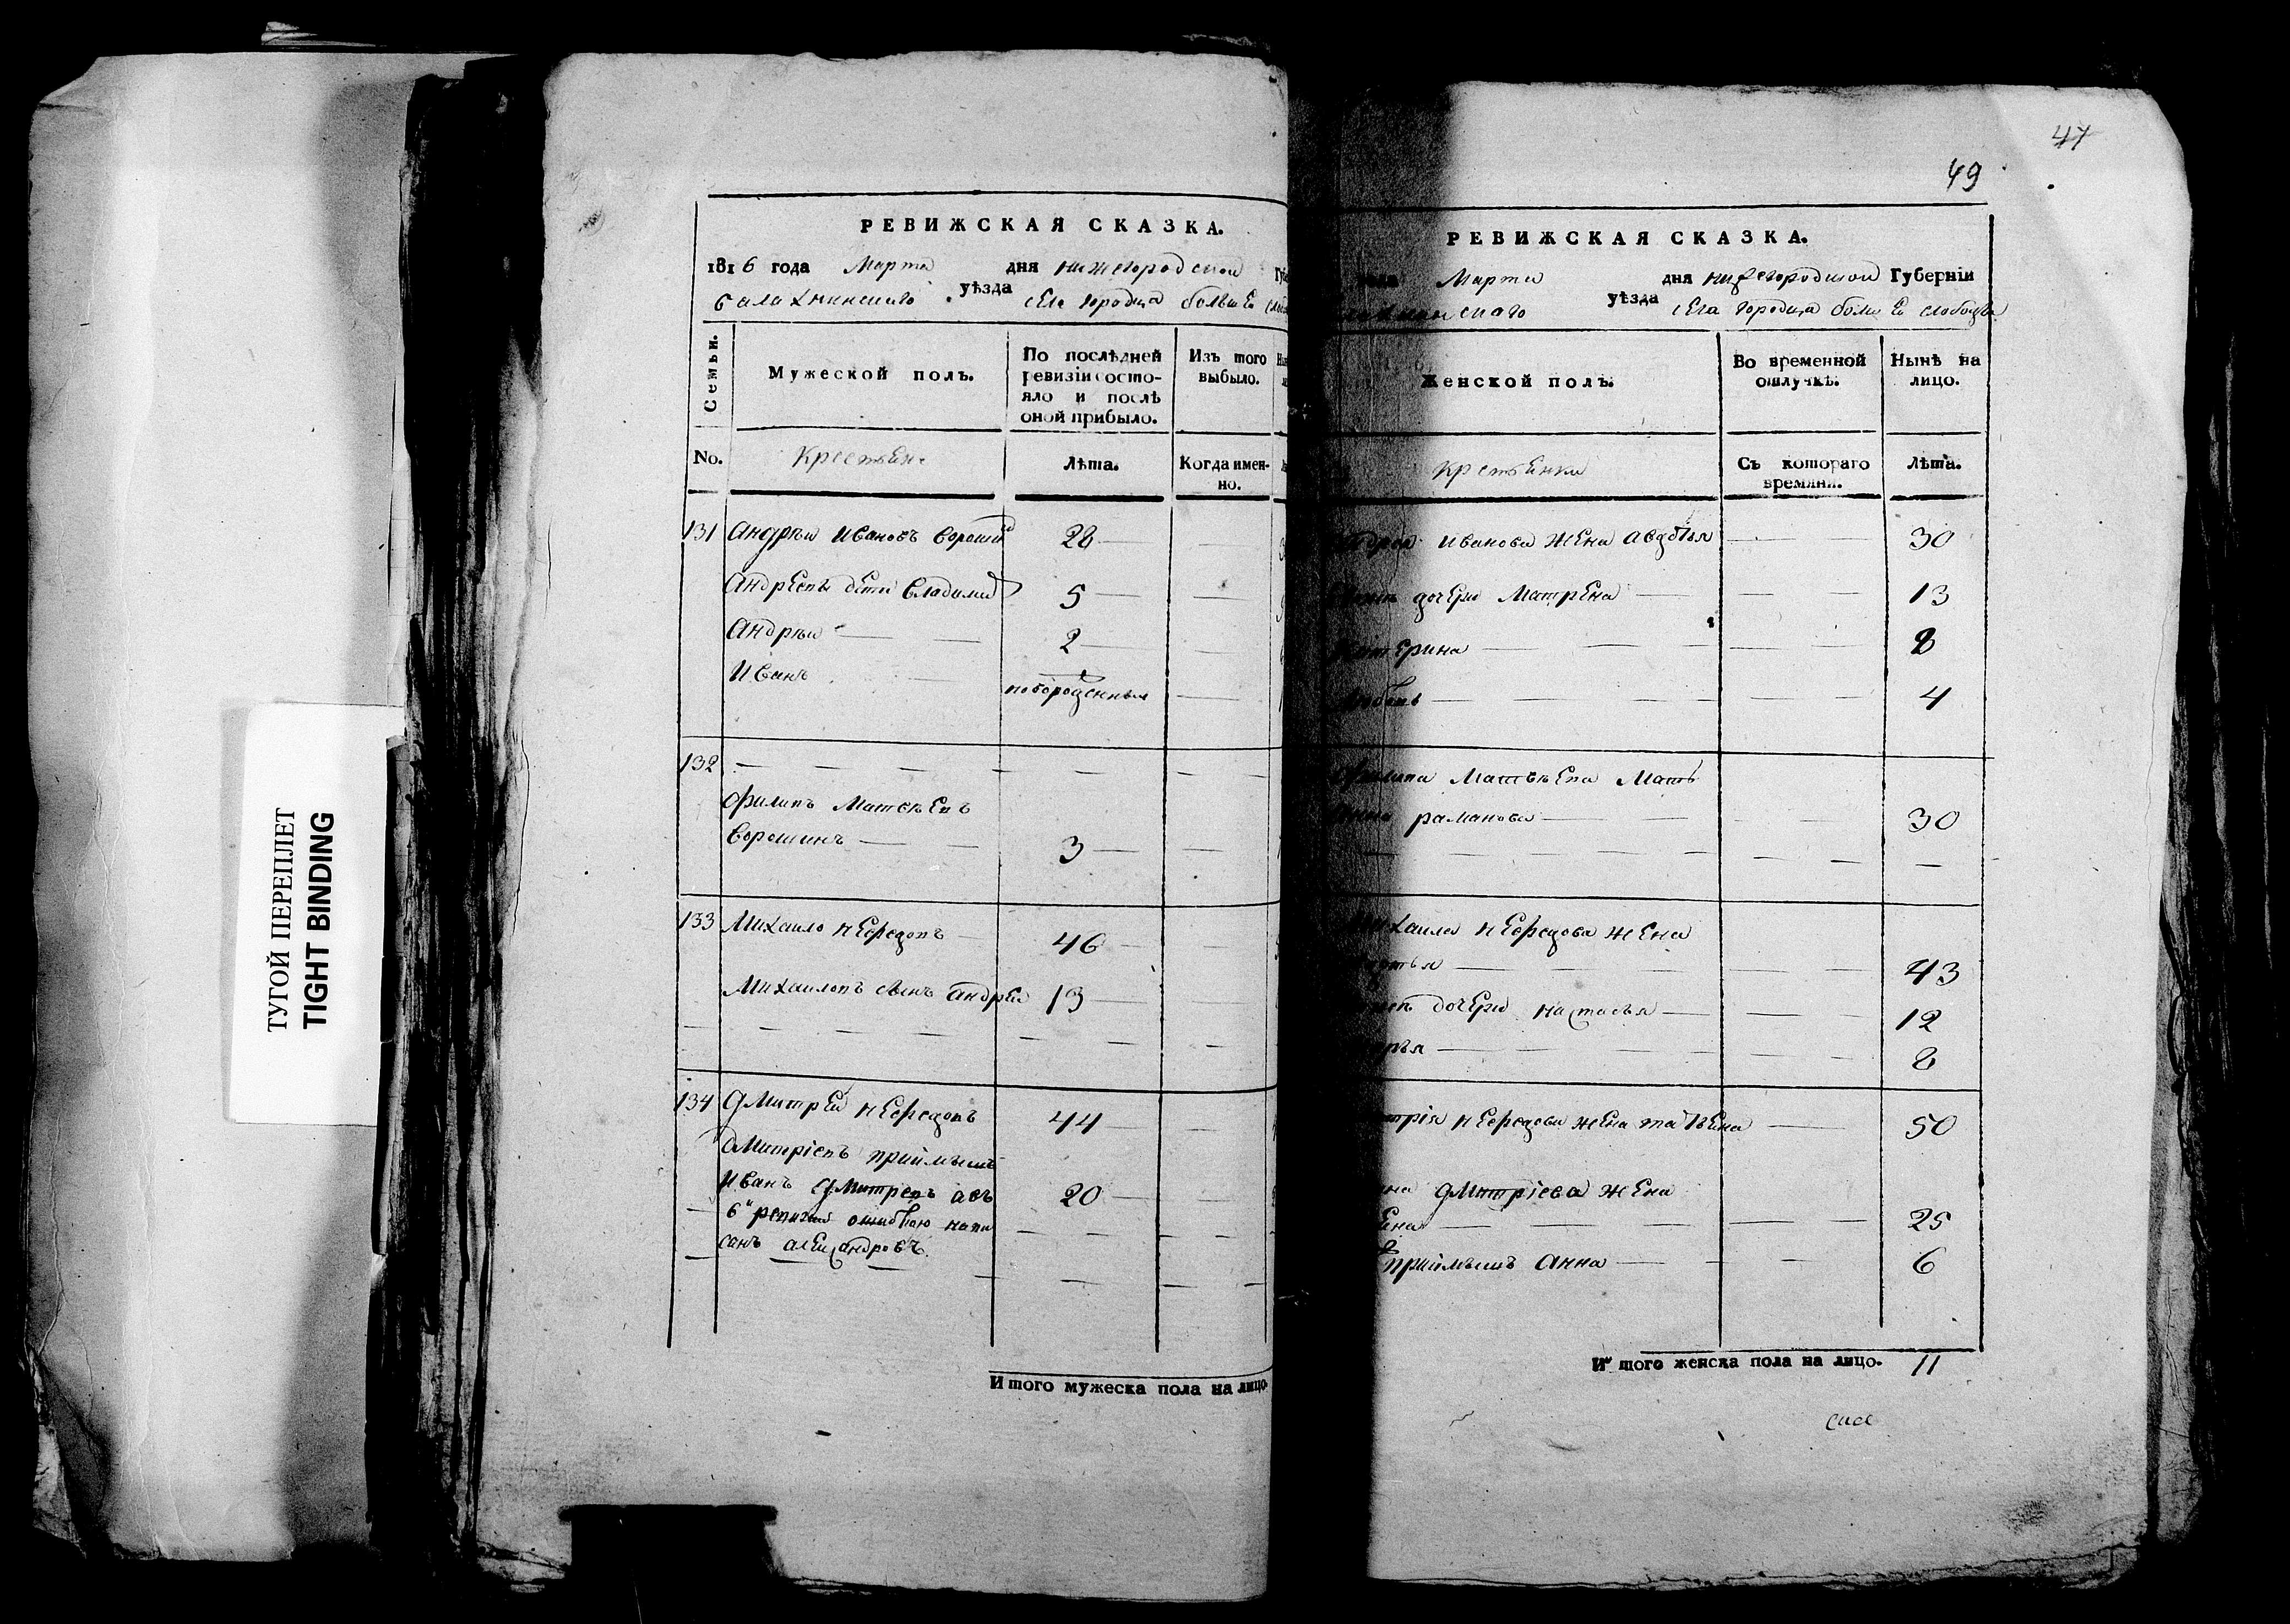 ТУГОЙ ПЕРЕПЛЕТ
TIGHT BINDING
РЕВИЖСКАЯ СКАЗКА.
1816 года Марта дня нижегородской
балахнинскаго уѣзда села городца больше
Семьи.
Мужеской полъ.
По послѣдней ревизіи состо-
яло и послѣ
оной прибыло.
Изъ того
выбыло.
No.
Крестьяне
Лѣта.
Когда имен-
но.
131 Андрѣй Ивановъ 28
Андреевы дети Владимир 5
Андрѣй 2
Иванъ новорожденныя
132
Филипъ Матвѣевъ
Ворошинъ 3
133 Михайло Нефедовъ 46
Михайловъ сынъ андрей 13
134 Дмитрей Нефедовъ 44
Дмитріевъ приймышъ
Иванъ Дмитревъ а въ 20
6й ревизіи ошибкою напи
санъ александровъ.
Итого мужеска пола на лицо
47
49
РЕВИЖСКАЯ СКАЗКА.
Марта дня нижегородской Губерніи
уѣзда села городца больше слободы
Женской полъ.
Во временной
отлучкѣ.
Нынѣ на
лицо.
крестьянки
Съ котораго
времяни.
Лѣта.
иванова жена авдотья 30
дочери Матрена 13
8
4
Филипа Матвѣева Мать
раманова 30
Михайла нефедова жена
43
дочери настасья 12
8
нефедова жена татьяна 50
дмитріева жена
25
приймышъ анна 6
Итого женска пола на лицо. 11